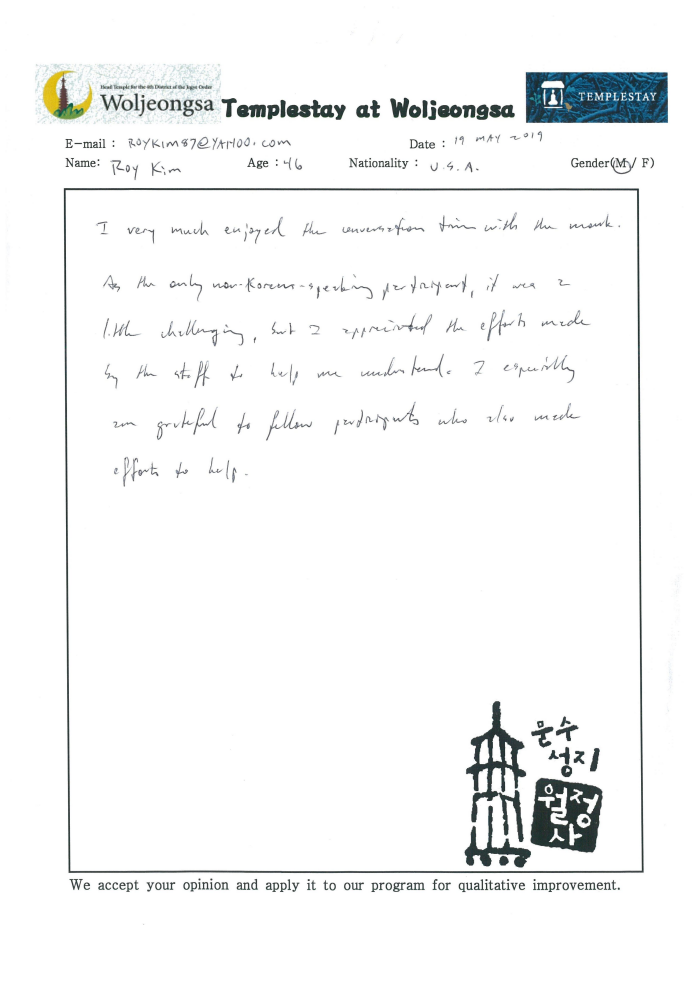 Head Temple for the 4th District of the Jogye Order
Woljeongsa
Templestay at Woljeongsa
TEMPLESTAY
E-mail : ROYKIM87@YAHOO.COM
Date : 19 MAY 2019
Name: Roy Kim
Age : 46
Nationality : U.S.A.
Gender(M / F)
I very much enjoyed the conversation time with the monk.
As the only non-Korean-speaking participant, it was a
little challenging, but I appreciated the efforts made
by the staff to help me understand. I especially
am grateful to fellow participants who also made
efforts to help.
문수
성지
월정
사
We accept your opinion and apply it to our program for qualitative improvement.